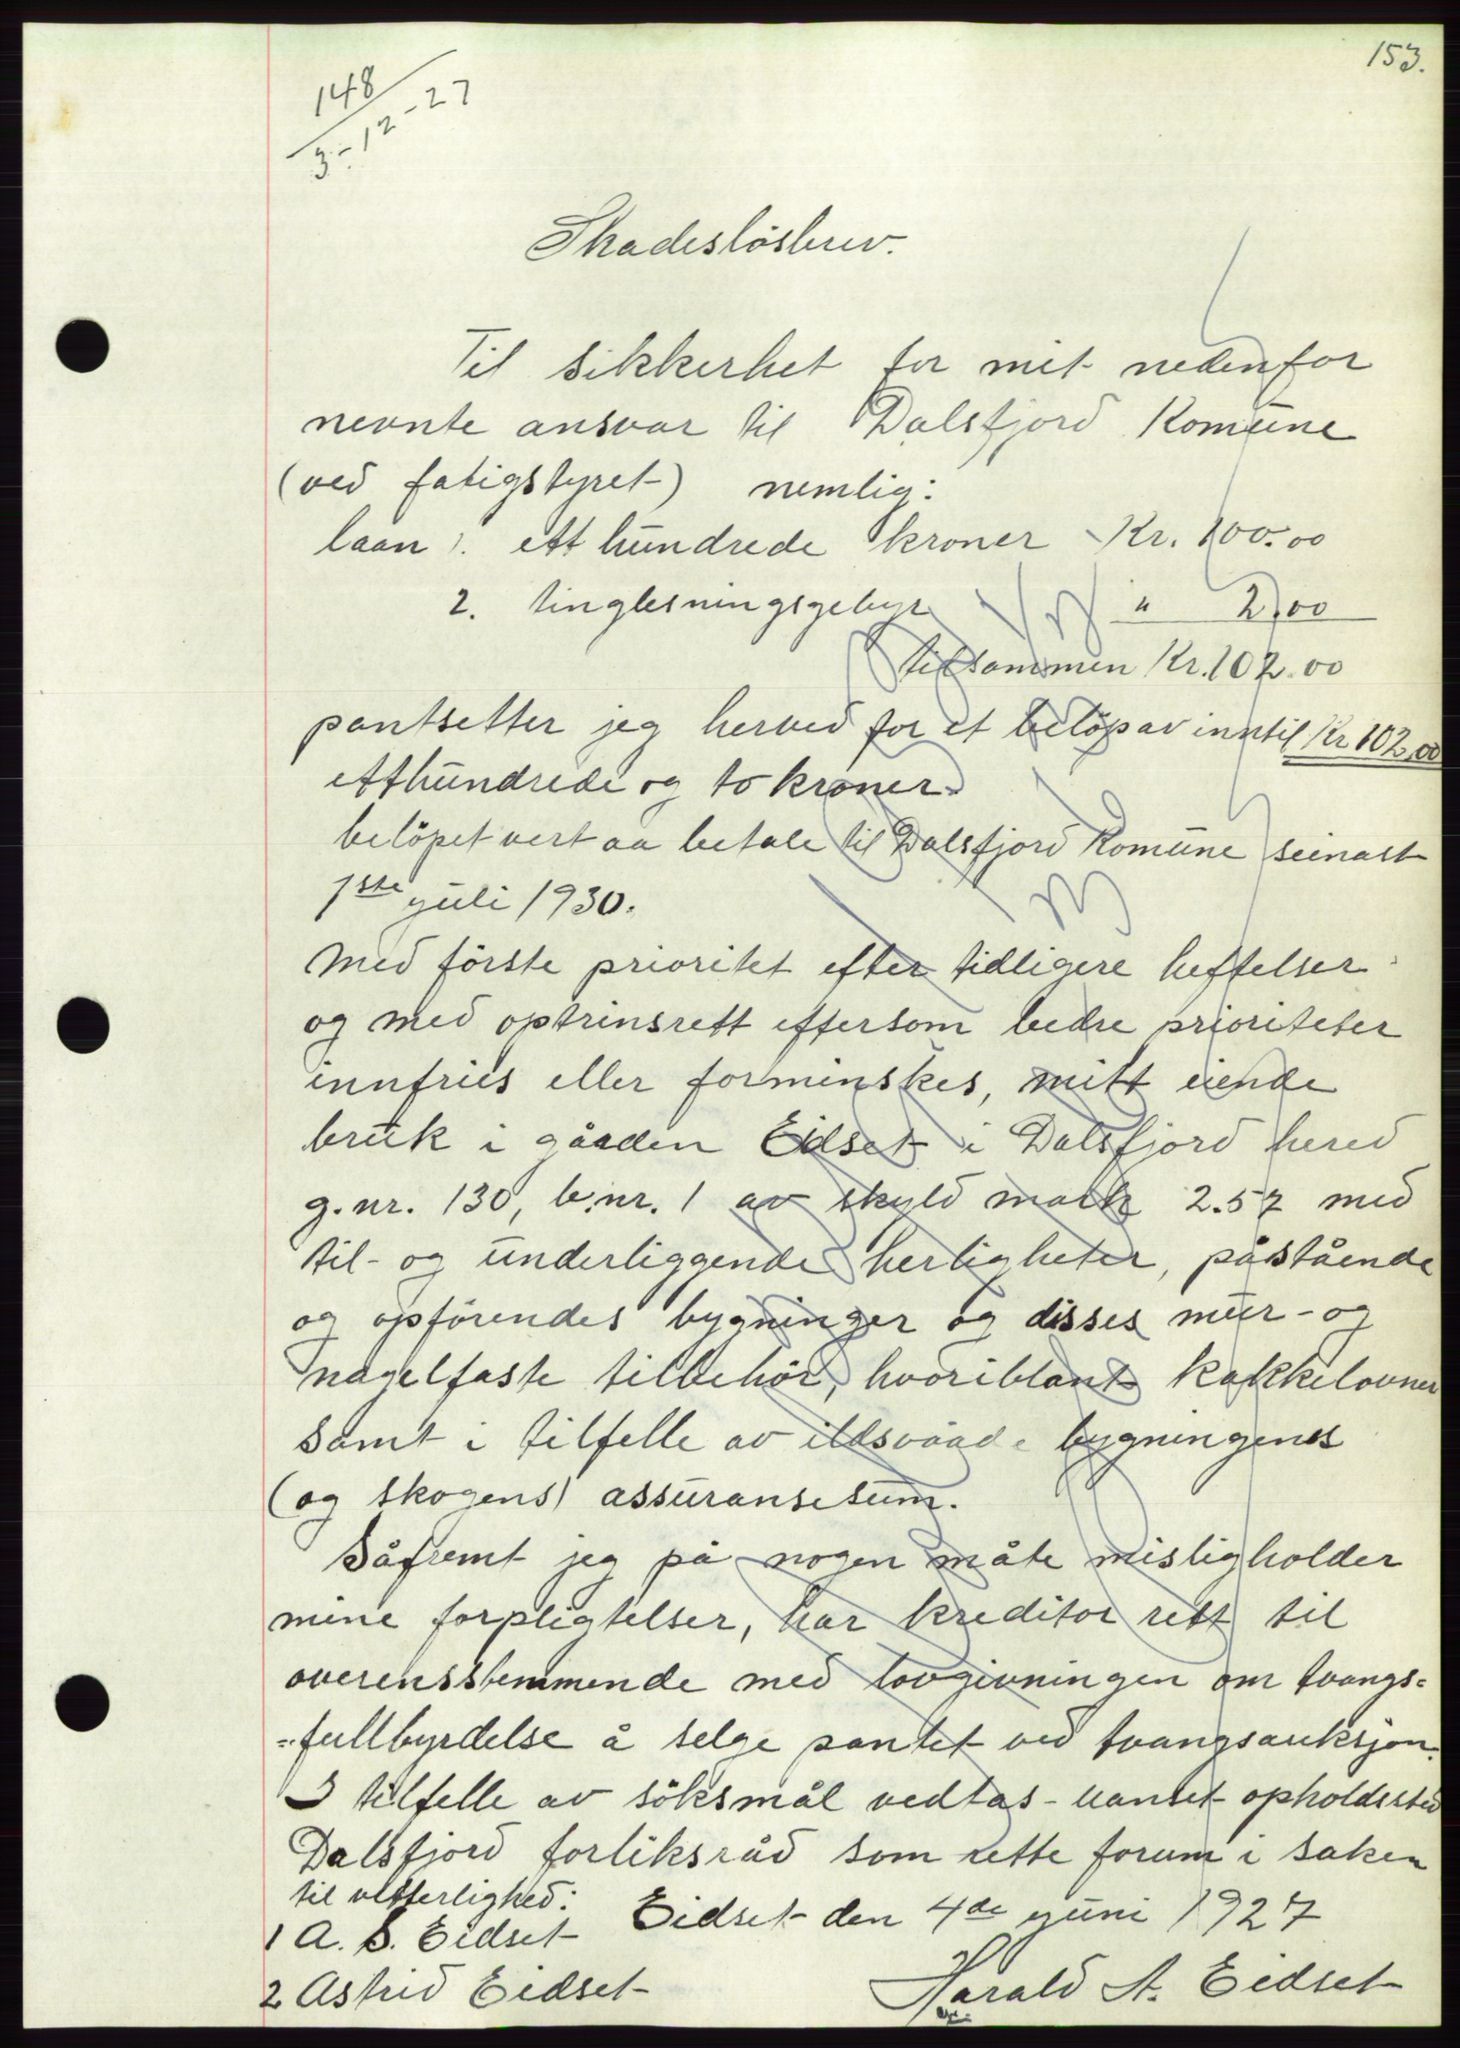 153.
148
3-12-27
Skadesløsbrev.
Til sikkerhet for mit nedenfor
nevnte ansvar til Dalsfjord Komune
(ved fatigstyret) nemlig:
laan 1. ett hundrede kroner Kr. 100.00
2. tinglesningsgebyr " 2.00
tilsammen Kr. 102.00
pantsetter jeg herved for et beløp av inntil Kr 102,00
etthundrede og to kroner.
beløpet vert aa betale til Dalsfjord Komune seinast
1ste juli 1930.
Med første prioritet efter tidligere heftelser
og med optrinsrett eftersom bedre prioriteter
innfries eller forminskes, mitt eiende
bruk i gården Eidset i Dalsfjord hered
g.nr. 130, b.nr. 1 av skyld mark 2.57 med
til- og underliggende herligheter, påstående
og opførendes bygninger og disses mur- og
nagelfaste tilbehør, hvoriblant kakkelovner
samt i tilfelle av ildsvåde bygningenes
(og skogens) assuransesum.
Såfremt jeg på nogen måte misligholder
mine forpligtelser, har kreditor rett til
overensstemmende med lovgivningen om tvangs=
=fullbyrdelse å selge pantet ved tvangsauksjon.
I tilfelle av søksmål vedtas - uanset opholdssted
Dalsfjord forliksråd som rette forum i saken
til vitterlighed: Eidset den 4de juni 1927
1 A. S. Eidset
2 Astrid Eidset Harald A. Eidset